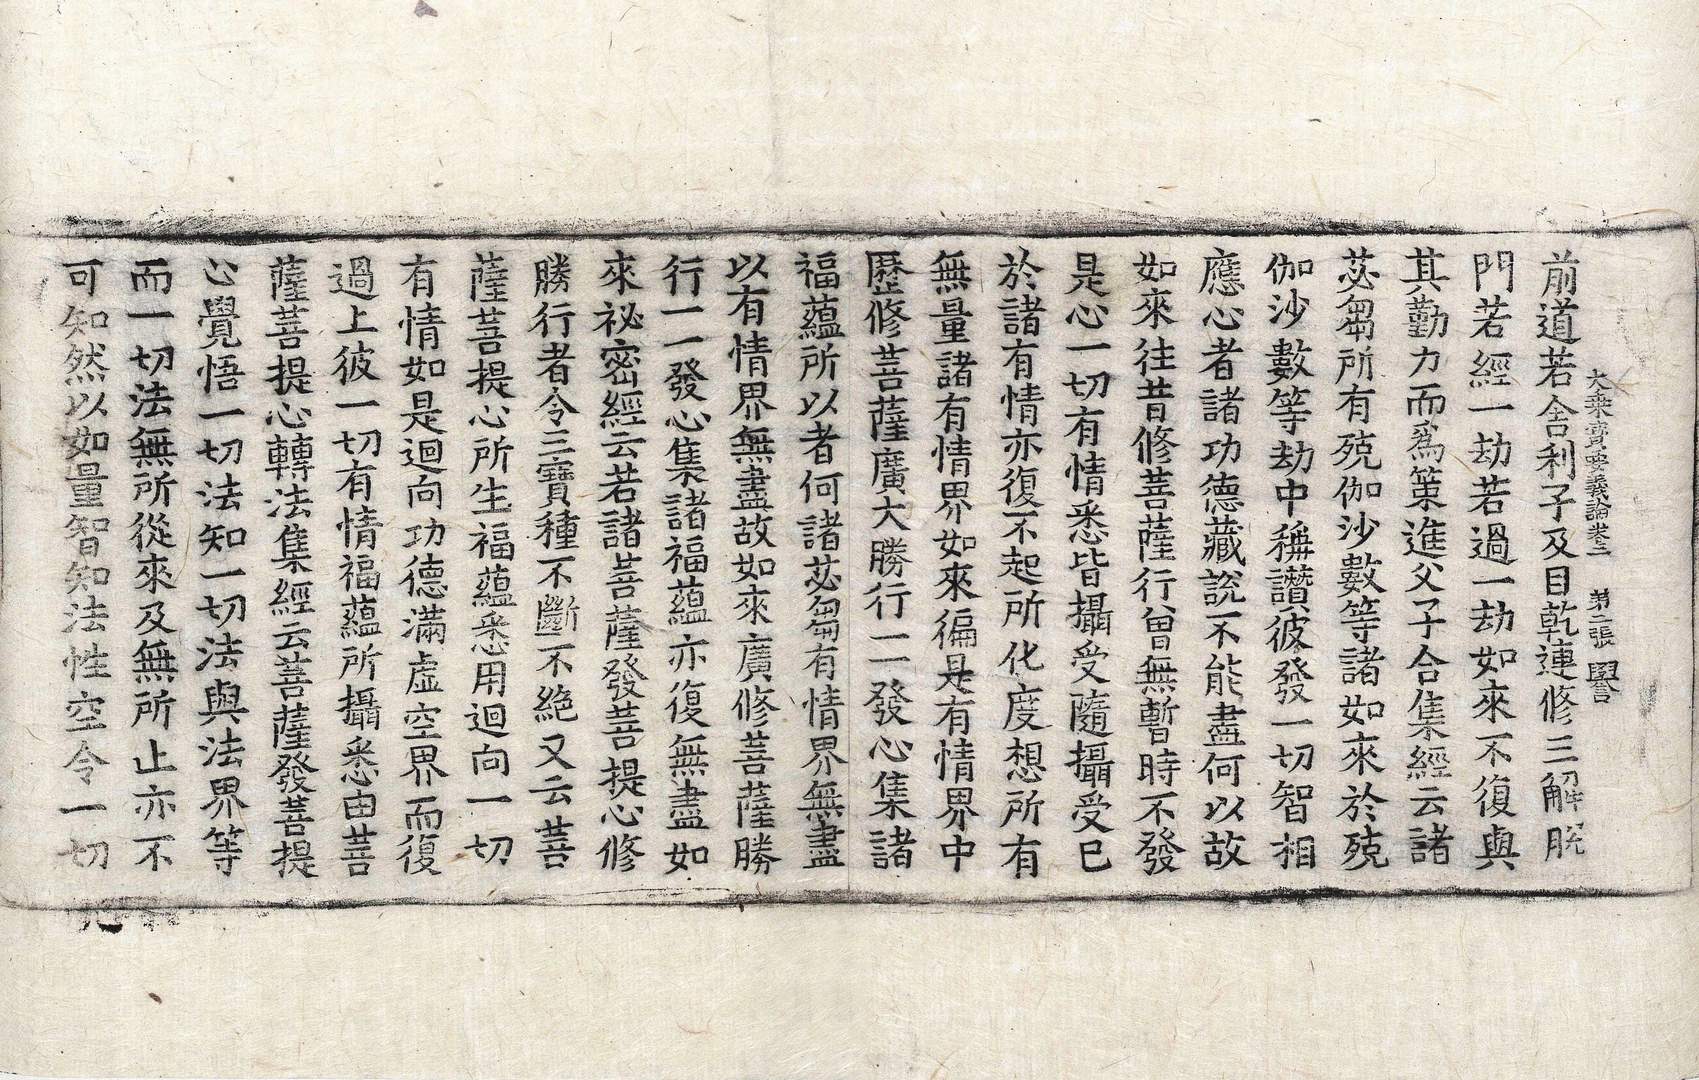 大乘寶要義論卷二　第二張　譽
前道若舍利子及目乾連修三解脫
門若經一劫若過一劫如來不復與
其勤力而爲策進父子合集經云諸
苾芻所有殑伽沙數等諸如來於殑
伽沙數等劫中稱讚彼發一切智相
應心者諸功德藏說不能盡何以故
如來往昔修菩薩行曾無暫時不發
是心一切有情悉皆攝受隨攝受已
於諸有情亦復不起所化度想所有
無量諸有情界如來徧是有情界中
歷修菩薩廣大勝行一一發心集諸
福蘊所以者何諸苾芻有情界無盡
以有情界無盡故如來廣修菩薩勝
行一一發心集諸福蘊亦復無盡如
來祕密經云若諸菩薩發菩提心修
勝行者令三寶種不斷不絕又云菩
薩菩提心所生福蘊悉用迴向一切
有情如是迴向功德滿虛空界而復
過上彼一切有情福蘊所攝悉由菩
薩菩提心轉法集經云菩薩發菩提
心覺悟一切法知一切法與法界等
而一切法無所從來及無所止亦不
可知然以如量智知法性空令一切